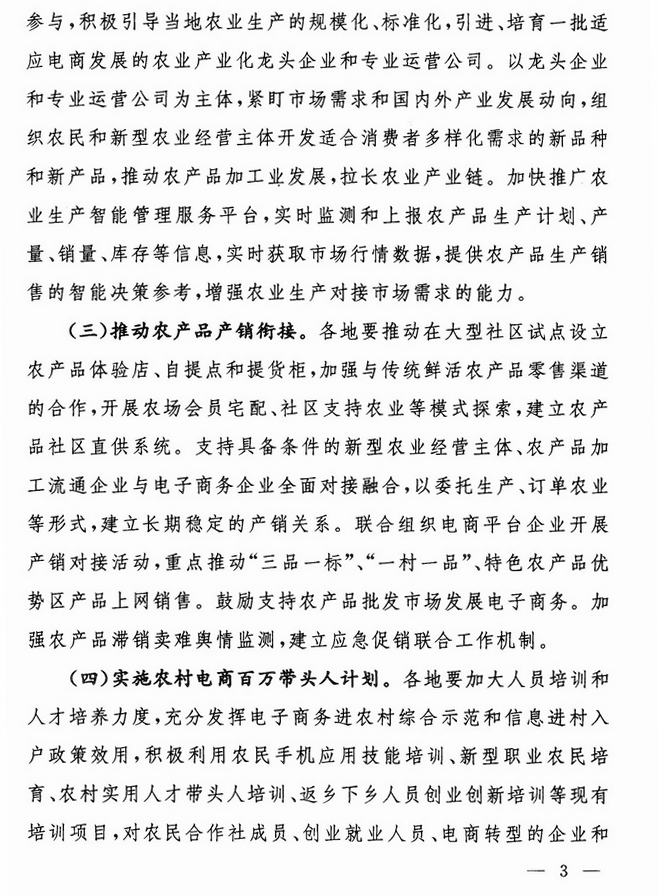 参与，积极引导当地农业生产的规模化、标准化，引进、培育一批适
应电商发展的农业产业化龙头企业和专业运营公司。以龙头企业
和专业运营公司为主体，紧盯市场需求和国内外产业发展动向，组
织农民和新型农业经营主体开发适合消费者多样化需求的新品种
和新产品，推动农产品加工业发展，拉长农业产业链。加快推广农
业生产智能管理服务平台，实时监测和上报农产品生产计划、产
量、销量、库存等信息，实时获取市场行情数据，提供农产品生产销
售的智能决策参考，增强农业生产对接市场需求的能力。
（三）推动农产品产销衔接。各地要推动在大型社区试点设立
农产品体验店、自提点和提货柜，加强与传统鲜活农产品零售渠道
的合作，开展农场会员宅配、社区支持农业等模式探索，建立农产
品社区直供系统。支持具备条件的新型农业经营主体、农产品加
工流通企业与电子商务企业全面对接融合，以委托生产、订单农业
等形式，建立长期稳定的产销关系。联合组织电商平台企业开展
产销对接活动，重点推动“三品一标”、“一村一品”、特色农产品优
势区产品上网销售。鼓励支持农产品批发市场发展电子商务。加
强农产品滞销卖难舆情监测，建立应急促销联合工作机制。
（四）实施农村电商百万带头人计划。各地要加大人员培训和
人才培养力度，充分发挥电子商务进农村综合示范和信息进村入
户政策效用，积极利用农民手机应用技能培训、新型职业农民培
育、农村实用人才带头人培训、返乡下乡人员创业创新培训等现有
培训项目，对农民合作社成员、创业就业人员、电商转型的企业和
— 3 —